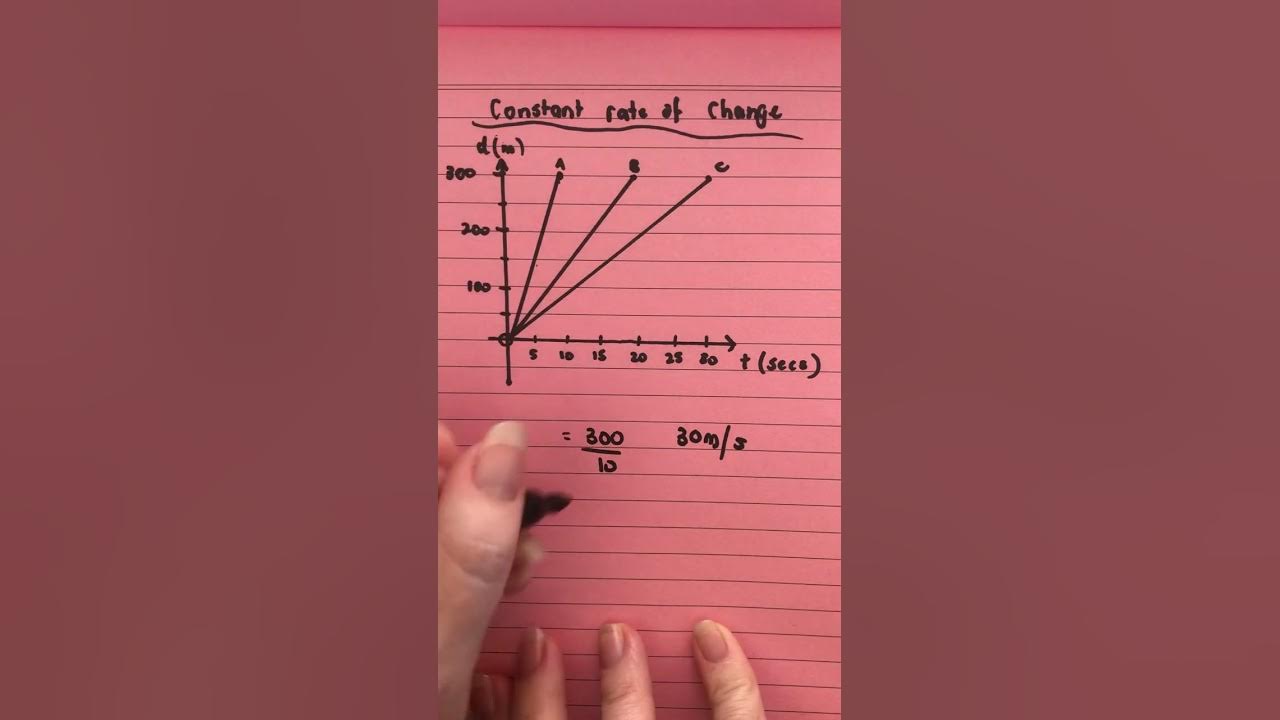 Constant rate of Change
d(m)
A B C
300
200
100
5 10 15 20 25 30 t (secs)
= 300 30m/s
10